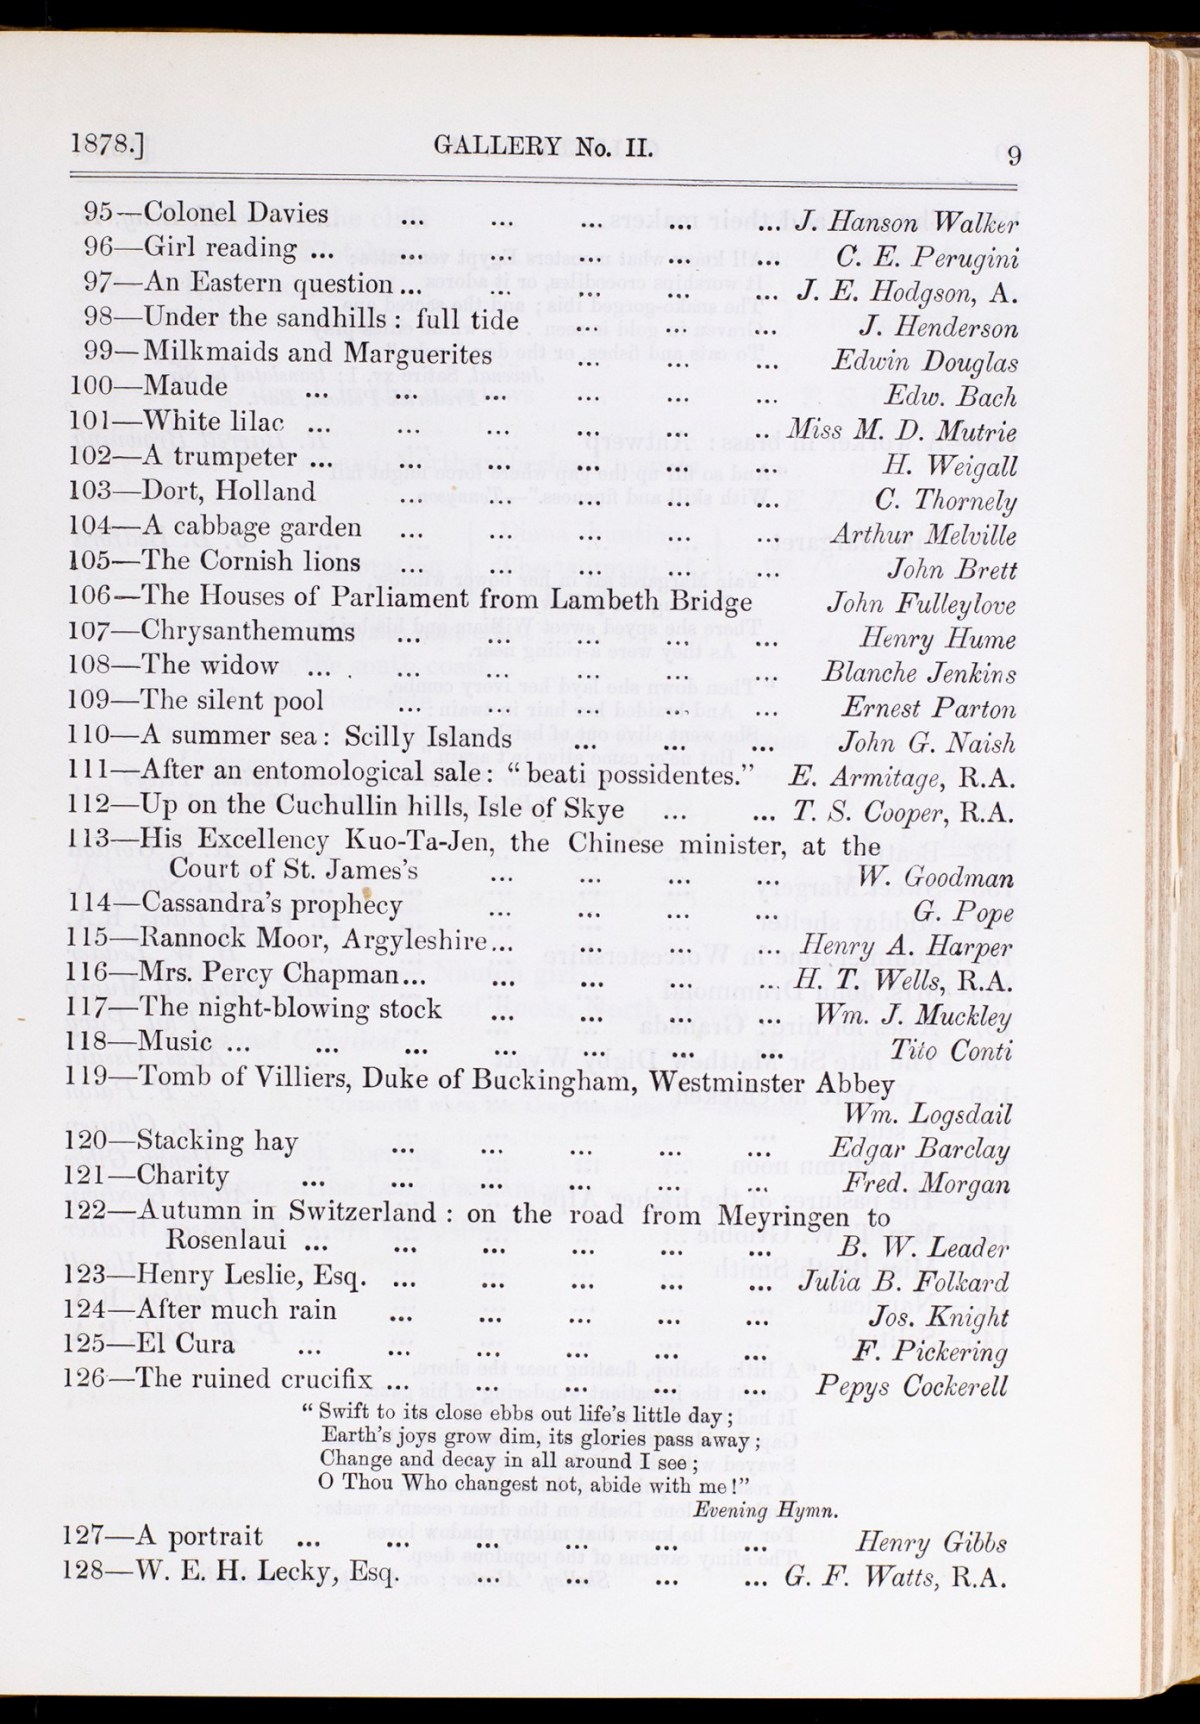 1878.] GALLERY No. II. 9
95—Colonel Davies ... ... ... ... ... J. Hanson Walker
96—Girl reading ... ... ... ... ... ... C. E. Perugini
97—An Eastern question ... ... ... ... ... J. E. Hodgson, A.
98—Under the sandhills: full tide ... ... ... J. Henderson
99—Milkmaids and Marguerites ... ... ... Edwin Douglas
100—Maude ... ... ... ... ... ... Edw. Bach
101—White lilac ... ... ... ... ... ... Miss M. D. Mutrie
102—A trumpeter ... ... ... ... ... ... H. Weigall
103—Dort, Holland ... ... ... ... ... C. Thornely
104—A cabbage garden ... ... ... ... ... Arthur Melville
105—The Cornish lions ... ... ... ... ... John Brett
106—The Houses of Parliament from Lambeth Bridge John Fulleylove
107—Chrysanthemums ... ... ... ... ... Henry Hume
108—The widow ... ... ... ... ... ... Blanche Jenkins
109—The silent pool ... ... ... ... ... Ernest Parton
110—A summer sea: Scilly Islands ... ... ... John G. Naish
111—After an entomological sale: “beati possidentes.” E. Armitage, R.A.
112—Up on the Cuchullin hills, Isle of Skye ... ... T. S. Cooper, R.A.
113—His Excellency Kuo-Ta-Jen, the Chinese minister, at the
Court of St. James’s ... ... ... ... W. Goodman
114—Cassandra’s prophecy ... ... ... ... G. Pope
115—Rannock Moor, Argyleshire... ... ... ... Henry A. Harper
116—Mrs. Percy Chapman... ... ... ... ... H. T. Wells, R.A.
117—The night-blowing stock ... ... ... ... Wm. J. Muckley
118—Music ... ... ... ... ... ... ... Tito Conti
119—Tomb of Villiers, Duke of Buckingham, Westminster Abbey
Wm. Logsdail
120—Stacking hay ... ... ... ... ... Edgar Barclay
121—Charity ... ... ... ... ... ... Fred. Morgan
122—Autumn in Switzerland: on the road from Meyringen to
Rosenlaui ... ... ... ... ... ... B. W. Leader
123—Henry Leslie, Esq. ... ... ... ... ... Julia B. Folkard
124—After much rain ... ... ... ... ... Jos. Knight
125—El Cura ... ... ... ... ... ... F. Pickering
126—The ruined crucifix ... ... ... ... ... Pepys Cockerell
“Swift to its close ebbs out life’s little day;
Earth’s joys grow dim, its glories pass away;
Change and decay in all around I see;
O Thou Who changest not, abide with me!”
Evening Hymn.
127—A portrait ... ... ... ... ... ... Henry Gibbs
128—W. E. H. Lecky, Esq. ... ... ... ... ... G. F. Watts, R.A.